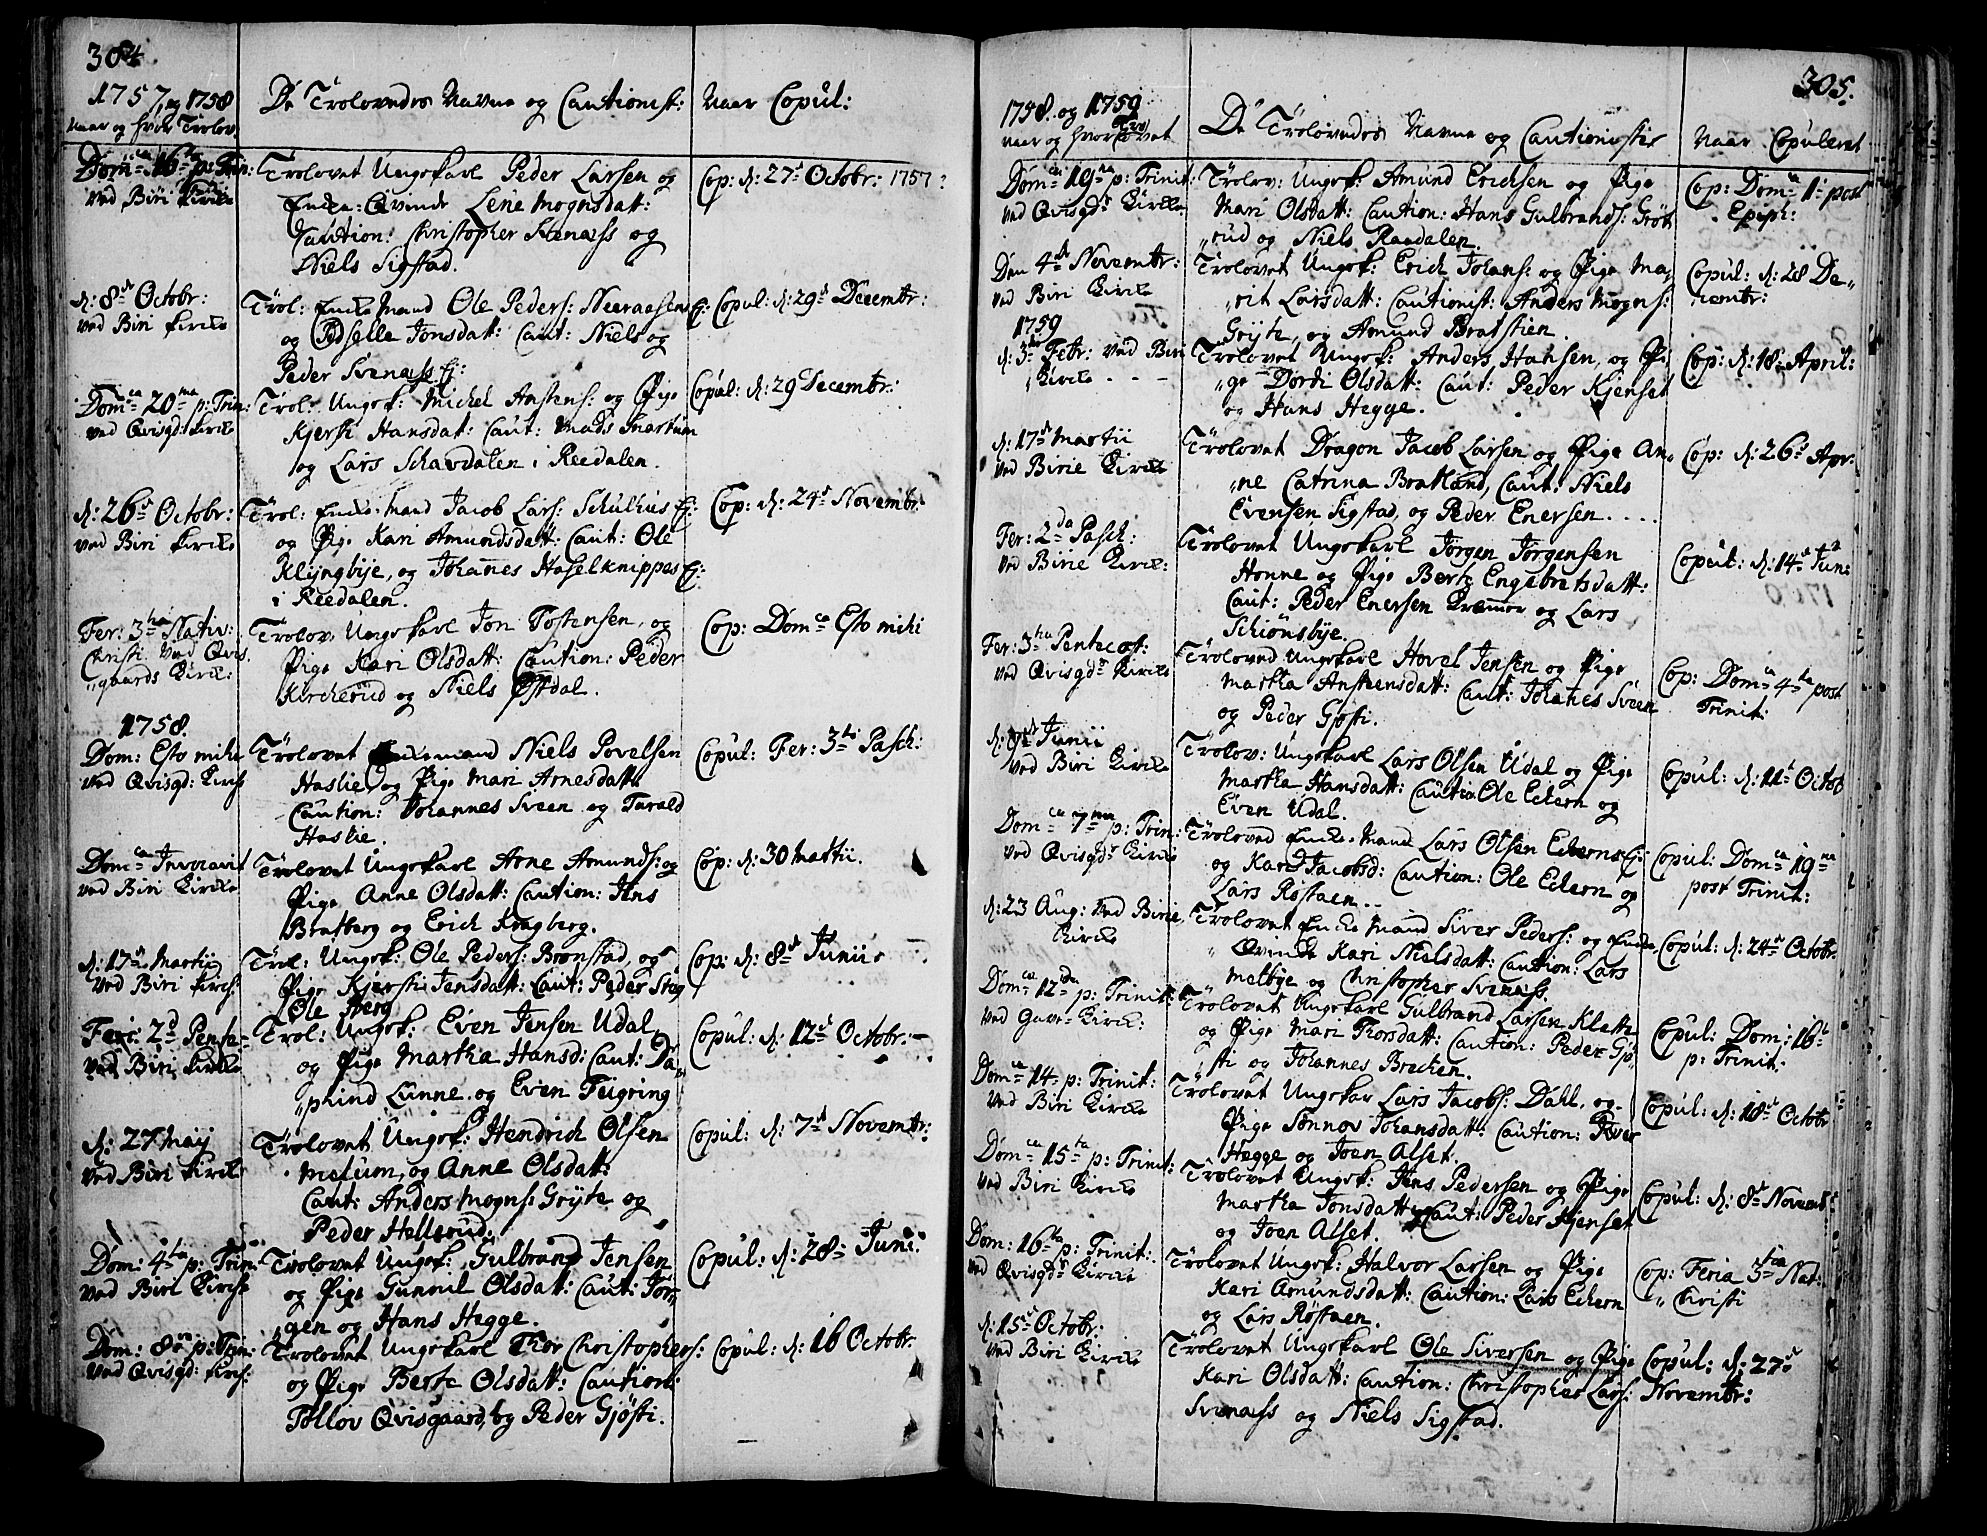 304.
1757, og 1758
Naar og hvor Trolov.
De Trolovedes Navne og Cautionist:
Naar Copul:
Domca 16ta p: Trin:
ved Biri Kircke
Trolovet Ungekarl Peder Larsen og
Encke-Qvinde Lene Mognsdatt:
Caution: Christopher Svenæss og
Niels Sigstad.
Cop: d: 27de Octobr: 1757
d: 8de Octobr:
ved Biri Kircke
Trol: Enckemand Ole Peders:
og Pige Selle Jonsdatt: Caut: Niels og
Peder Svenæss Ej:
Copul: d: 29de Decembr:
Domca 20ma p: Trin:
ved Qvisgd: Kircke
Trol: Ungek: Michel Hastens: og Pige
Kjersti Hansdat: Caut: Mads Snartum
og Lars Schardalen i Reedalen.
Copul: d: 29 Decembr:
d: 26de Octobr:
ved Biri Kircke
Trol: Encke-Mand Jacob Lars: Schulhus Ej:
og Pige Kari Amundsdatt: Caut: Ole
Klyngbye, og Johannes Haselknippes Ej:
i Reedalen.
Cop: d: 24de Novembr:
Fer: 3tia Nativ:
Christi ved Qvis
"gaards Kirck:
Trolov: Ungekarl Jon Tostensen, og
Pige Kari Olsdatt: Caution: Peder
Kircherud og Niels Østdal.
Cop: Domca Esto mihi
1758.
Dom: Esto mihi
ved Qvisgd: Kirch
Trolovet Enckemand Niels Povelsen
Haslie, og Pige Mari Arnesdatt:
Caution: Johannes Sveen og Tarald
Haslie.
Copul: Fer: 3tia Pasch:
Domca Invocavit
ved Biri Kircke
Trolovet Ungekarl Arne Amunds: og
Pige Anne Olsdatt: Caution: Jens
Bratberg og Erich Kragberg.
Cop: d: 30 Martii.
d: 17de Martii
ved Biri Kirch:
Trol: Ungek: Ole Peders: Bronstad, og
Pige Kjersti Jensdatt: Caut: Peder Steg
Ole Berg
Cop: d: 8de Junii
Feri: 2d Pente-
ved Biri Kircke
Trol: Ungek: Even Jensen Udal,
og Pige Martha Hansd: Caut: Da"
"phind Lunne og Even Feigring
Copul: d: 12de Octobr:
d: 27 Maij
ved Biri Kircke
Trolovet Ungek: Hendrich Olsen
Melum, og Anne Olsdatt:
Caut: Anders Mogns: Gryte og
Peder Hellerud.
Copul: d: 7de Novembr:
Dom: 4ta p: Trin:
ved Biri Kirch
Trolovet Ungek: Gulbrand Jensen
og Pige Gunnil Olsdatt: Caut: Jør"
"gen og Hans Hegge.
Copul: d: 28de Junii:
Dom: 8va p: Trin:
ved Qvisgd: Kirch:
Trolovet Ungekarl Thor Christophers:
og Pige Berte Olsdatt: Caution:
Tollov Qvisgaard, og Peder Gjøsti.
Copul: d: 16 Octobr.
305.
1758. og 1759
Naar og hvor Trolovet
De Trolovedes Navne og Cautionister
Naar Copuleret
Domca 19na p: Trinit:
ved Qvisgds Kircke
Trolov: Ungek: Amund Erichsen og Pige
Mari Olsdatt: Caution: Hans Gulbrands: Grøt
"rud og Niels Raadalen.
Cop: Domca 1. post
Epiph:
Den 4de Novembr:
ved Biri Kircke
Trolovet Ungek: Erich Johans: og Pige Ma"
"rit Larsdatt: Cautionist: Anders Mogns:
Gryte, og Amund Bratstien.
Copul: d: 28 De"
cembr:
1759
d: 3die Febr: ved Biri
Kircke
Trolovet Ungek: Anders Hansen, og Pi"
"ge Dordi Olsdatt: Caut: Peder Kjenset
og Hans Hegge.
Cop: d: 18de April:
d: 17de Martii
ved Birie Kircke
Trolovet Dragon Jacob Larsen og Pige An"
"ne Catrina Bratland, Caut: Niels
Evensen Sigstad, og Peder Enersen....
Cop: d: 26de Apr:
Fer: 2da Pasch:
ved Birie Kircke
Trolovet Ungekarl Jørgen Jørgensen
Honne og Pige Berte Engebretsdatt:
Caut: Peder Enersen Kræmmer og Lars
Schiønsbye.
Copul: d: 14de Juni
Fer: 3tia Pentecost:
ved Qvisgds Kircke
Troloved Ungekarl Hovel Jensen og Pige
Martha Anstensdatt: Caut: Johanes Sveen
og Peder Gjøsti.
Cop: Domca 4ta post
Trinit:
d: 9de Junii
ved Biri Kircke
Trolov: Ungekarl Lars Olsen Udal og Pige
Martha Hansdatt: Cautio: Ole Eckern og
Even Udal.
Copul: d: 11te Octob
Domca 7ma p: Trin:
ved Qvisgds Kircke
Trolovad Encke-Mand Lars Olsen Eckerns Ej:
og Kari Jacobsd: Caution: Ole Eckern og
Lars Røstaen..
Copul: Domca 19na
post Trinit:
d: 23 Aug: ved Birie
Kircke
Trolovet Encke Mand Siver Peders: og Encke
Qvinde Kari Nielsdatt: Caution: Lars
Melbye og Christopher Svenæss.
Copul: d: 24de Octobr.
Domca 12da p: Trinit:
ved Kirck:
Trolovet Ungekarl Gulbrand Larsen Klette
og Pige Mari Thorsdatt: Caution: Peder Gjø"
"sti og Johannes Brecken.
Copul: Dom: 16te
p: Trinit:
Domca 14 p: Trinit:
ved Biri Kircke
Trolovet Ungekar Lars Jacobs: Dahl, og
Pige Sønnov Johansdatt: Caution: Iver
Hegge og Joen Alset.
Copul: d: 18de Octobr
Domca 15ta p: Trinit:
ved Biri Kircke
Trolovet Ungek: Jens Pedersen og Pige
Martha Jonsdatt: Caut: Peder Kjenset
og Joen Alset.
Copul: d: 8de Novemb:
Dom: 16ta p: Trinit:
ved Qvisgds Kircke
Trolovet Ungek: Halvor Larsen og Pige
Kari Amundsdatt: Caution: Lars Eckern
og Lars Røstaen.
Cop: Feria 3tia Nat:
" Christi
d: 15de Octobr:
ved Biri Kircke
Trolovet Ungekarl Ole Siversen og Pige
Kari Olsdatt: Caution: Christopher Lars:
Svenæss og Niels Sigstad.
Copul: d: 27de
Novembr: